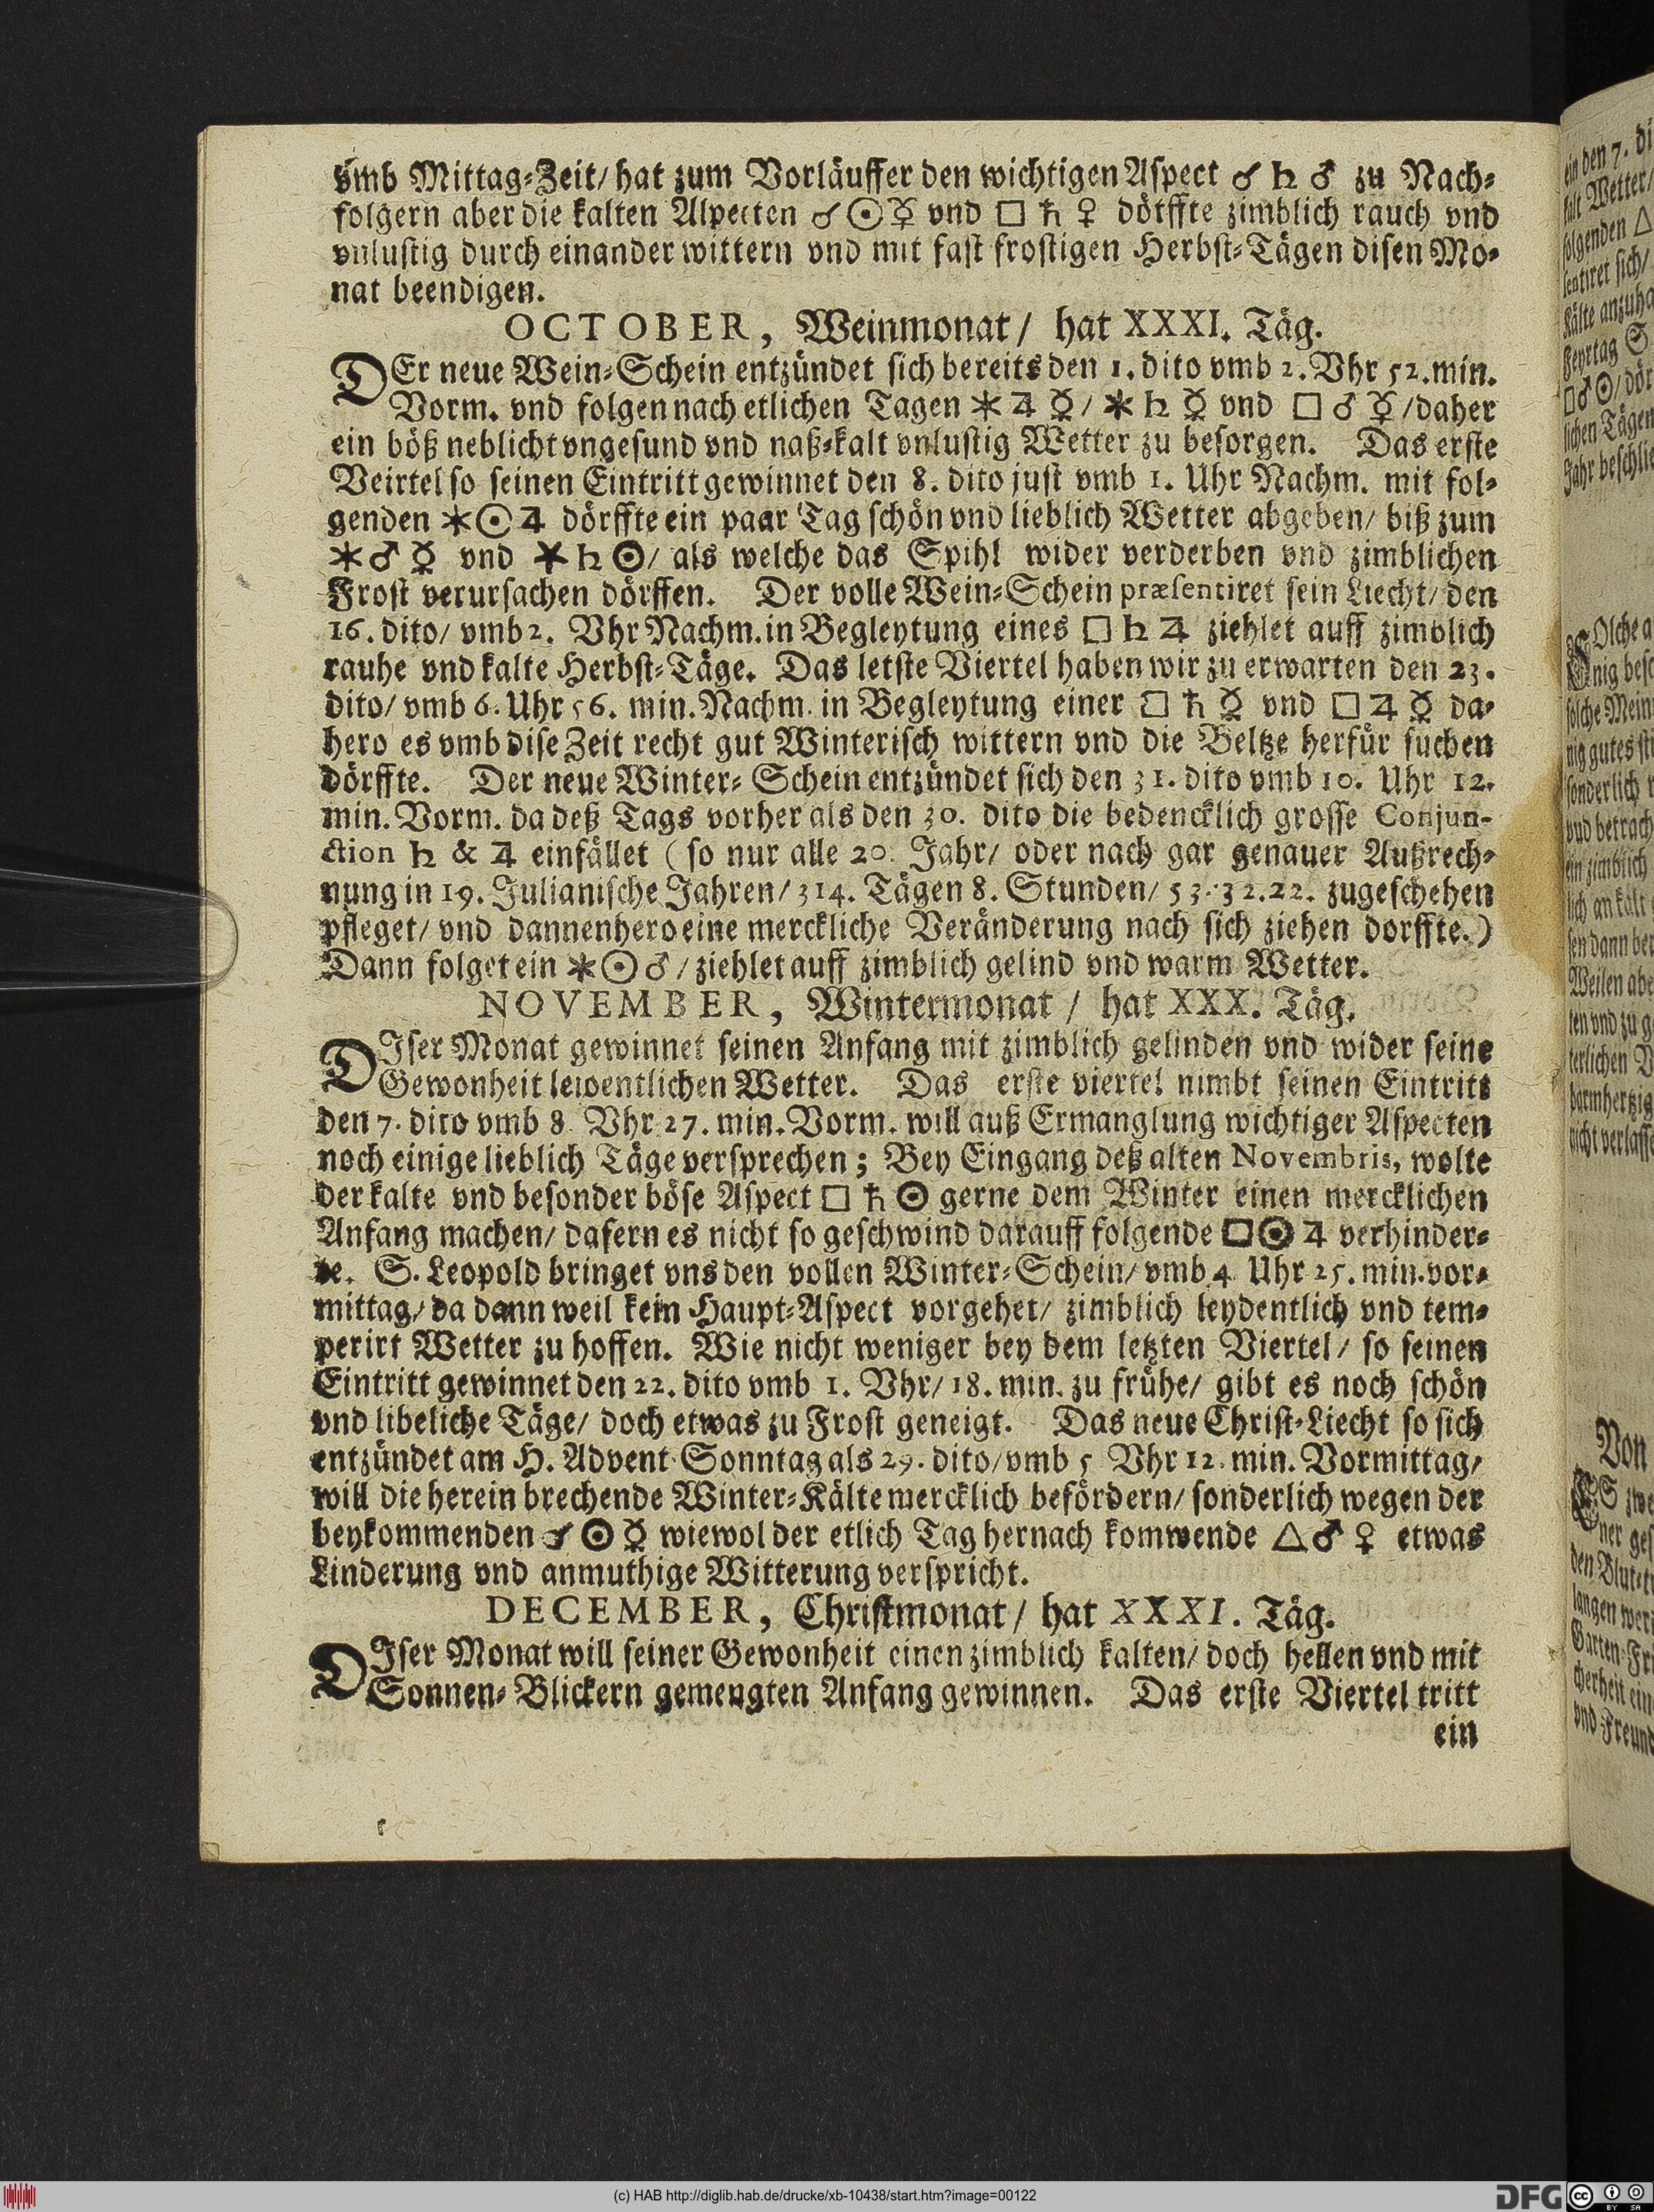 vmb Mittag⸗Zeit/ hat zum Vorläuffer den wichtigen Aſpect ☌ ♄ ♂ zu Nach⸗
folgern aber die kalten Alpecten ☌ ☉ ☿ vnd □ ♄ ♀ dörffte zimblich rauch vnd
vnluſtig durch einander wittern vnd mit faſt froſtigen Herbſt⸗Tägen diſen Mo⸗
nat beendigen.
OCTOBER, Weinmonat/ hat XXXI. Täg.
DEr neue Wein⸗Schein entzündet ſich bereits den 1. dito vmb 2. Vhr 52. min.
Vorm. vnd folgen nach etlichen Tagen ⚹ ♃ ☿/ ⚹ ♄ ☿ vnd □ ♂ ☿/ daher
ein böß neblicht vngeſund vnd naß⸗kalt vnluſtig Wetter zu beſorgen. Das erſte
Veirtel ſo ſeinen Eintritt gewinnet den 8. dito juſt vmb 1. Uhr Nachm. mit fol⸗
genden ⚹ ☉ ♃ dörffte ein paar Tag ſchön vnd lieblich Wetter abgeben/ biß zum
⚹ ♂ ☿ vnd ⚹ ♄ ☉/ als welche das Spihl wider verderben vnd zimblichen
Froſt verurſachen dörffen. Der volle Wein⸗Schein præſentiret ſein Liecht/ den
16. dito/ vmb 2. Vhr Nachm. in Begleytung eines □ ♄ ♃ ziehlet auff zimblich
rauhe vnd kalte Herbſt⸗Täge. Das letſte Viertel haben wir zu erwarten den 23.
dito/ vmb 6. Uhr 56. min. Nachm. in Begleytung einer □ ♄ ☿ vnd □ ♃ ☿ da⸗
hero es vmb diſe Zeit recht gut Winteriſch wittern vnd die Beltze herfür ſuchen
dörffte. Der neue Winter⸗ Schein entzündet ſich den 31. dito vmb 10. Uhr 12.
min. Vorm. da deß Tags vorher als den 30. dito die bedencklich groſſe Conjun-
ction ♄ & ♃ einfället (ſo nur alle 20. Jahr/ oder nach gar genauer Außrech⸗
nung in 19. Julianiſche Jahren/ 314. Tägen 8. Stunden/ 53. 32. 22. zugeſchehen
pfleget/ vnd dannenhero eine merckliche Veränderung nach ſich ziehen dorffte.)
Dann folget ein ⚹ ☉ ♂/ ziehlet auff zimblich gelind vnd warm Wetter.
NOVEMBER, Wintermonat/ hat XXX. Täg.
DIſer Monat gewinnet ſeinen Anfang mit zimblich gelinden vnd wider ſeine
Gewonheit lewentlichen Wetter. Das erſte viertel nimbt ſeinen Eintritt
den 7. dito vmb 8. Vhr 27. min. Vorm. will auß Ermanglung wichtiger Aſpecten
noch einige lieblich Täge verſprechen; Bey Eingang deß alten Novembris, wolte
der kalte vnd beſonder böſe Aſpect □ ♄ ☉ gerne dem Winter einen mercklichen
Anfang machen/ dafern es nicht ſo geſchwind darauff folgende □ ☉ ♃ verhinder⸗
te. S. Leopold bringet vns den vollen Winter⸗Schein/ vmb 4 Uhr 25. min. vor⸗
mittag/ da dann weil kein Haupt⸗Aſpect vorgehet/ zimblich leydentlich vnd tem⸗
perirt Wetter zu hoffen. Wie nicht weniger bey dem letzten Viertel/ ſo ſeinen
Eintritt gewinnet den 22. dito vmb 1. Vhr/ 18. min. zu frühe/ gibt es noch ſchön
vnd libeliche Täge/ doch etwas zu Froſt geneigt. Das neue Chriſt⸗Liecht ſo ſich
entzündet am H. Advent Sonntag als 29. dito/ vmb 5 Vhr 12. min. Vormittag/
will die herein brechende Winter⸗Kälte mercklich befördern/ ſonderlich wegen der
beykommenden ☌ ☉ ☿ wiewol der etlich Tag hernach komwende △ ♂ ♀ etwas
Linderung vnd anmuthige Witterung verſpricht.
DECEMBER, Chriſtmonat/ hat XXXI. Täg.
DIſer Monat will ſeiner Gewonheit einen zimblich kalten/ doch hellen vnd mit
Sonnen⸗ Blickern gemengten Anfang gewinnen. Das erſte Viertel tritt
ein
ein den 7. di
kalt Wetter/
folgenden △
ſentiret ſich/
Kälte anzuha
Feyrtag S
□ ♂ ☉/ dör
lichen Tägen
Jahr beſchlie
SOlche a
nig beſc
ſolche Mein
nig gutes ſti
ſonderlich
vnd betrach
ein zimblich
lich an kält
ſen dann ber
Weilen abe
ten vnd zu g
terlichen V
barmhertzig
nicht verlaſſe
Von
ES zwe
ner geſ
den Blut⸗
langen wer
Garten⸗Fr
cherheit ein
vnd Freund
(c) HAB http://diglib.hab.de/drucke/xb-10438/start.htm?image=00122
DFG
CC BY SA